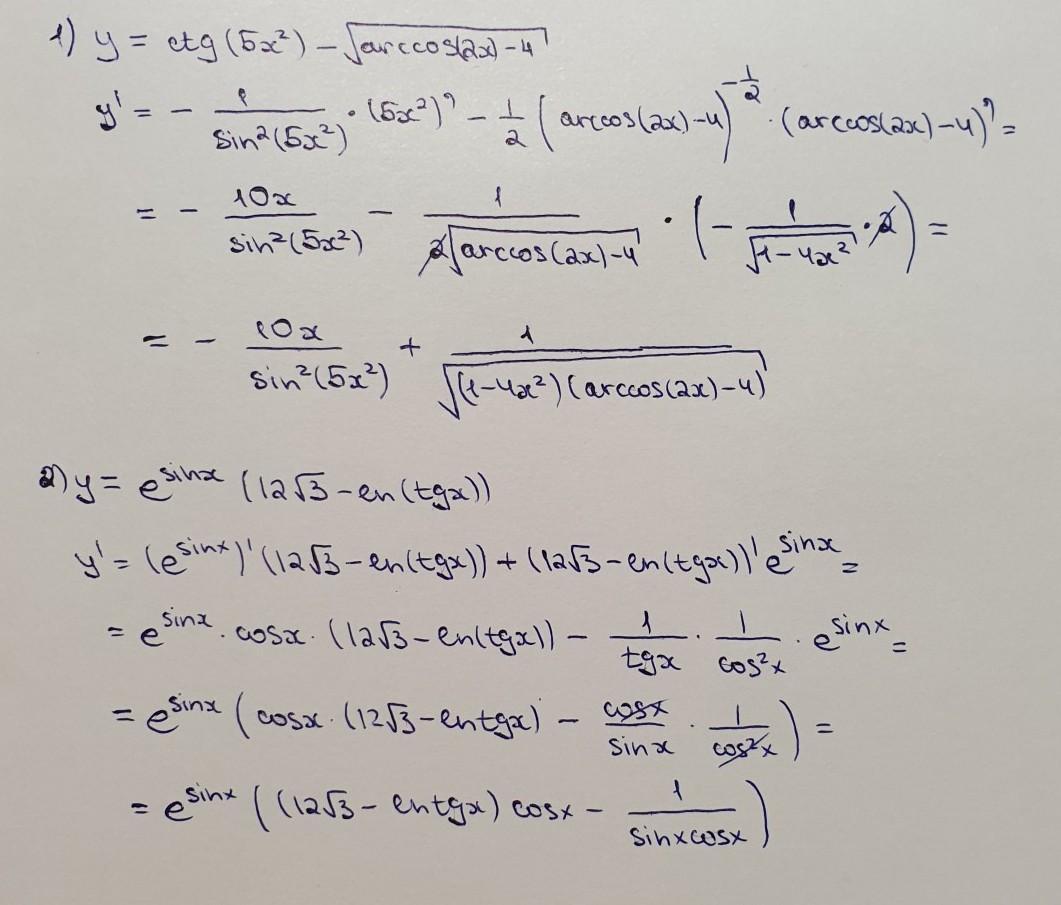 1) y = ctg(5x²) − √(arccos(2x)−4)
y' = − 1/sin²(5x²) · (5x²)' − 1/2 (arccos(2x)−4)^(−1/2) · (arccos(2x)−4)' =
= − 10x/sin²(5x²) − 1/(2√(arccos(2x)−4)) · (− 1/√(1−4x²) · 2) =
= − 10x/sin²(5x²) + 1/√((1−4x²)(arccos(2x)−4))
2) y = e^(sinx) (12√3 − ln(tgx))
y' = (e^(sinx))' (12√3 − ln(tgx)) + (12√3 − ln(tgx))' e^(sinx) =
= e^(sinx) · cosx · (12√3 − ln(tgx)) − 1/tgx · 1/cos²x · e^(sinx) =
= e^(sinx) (cosx · (12√3 − ln tgx) − cosx/sinx · 1/cos²x) =
= e^(sinx) ((12√3 − ln tgx) cosx − 1/(sinxcosx))